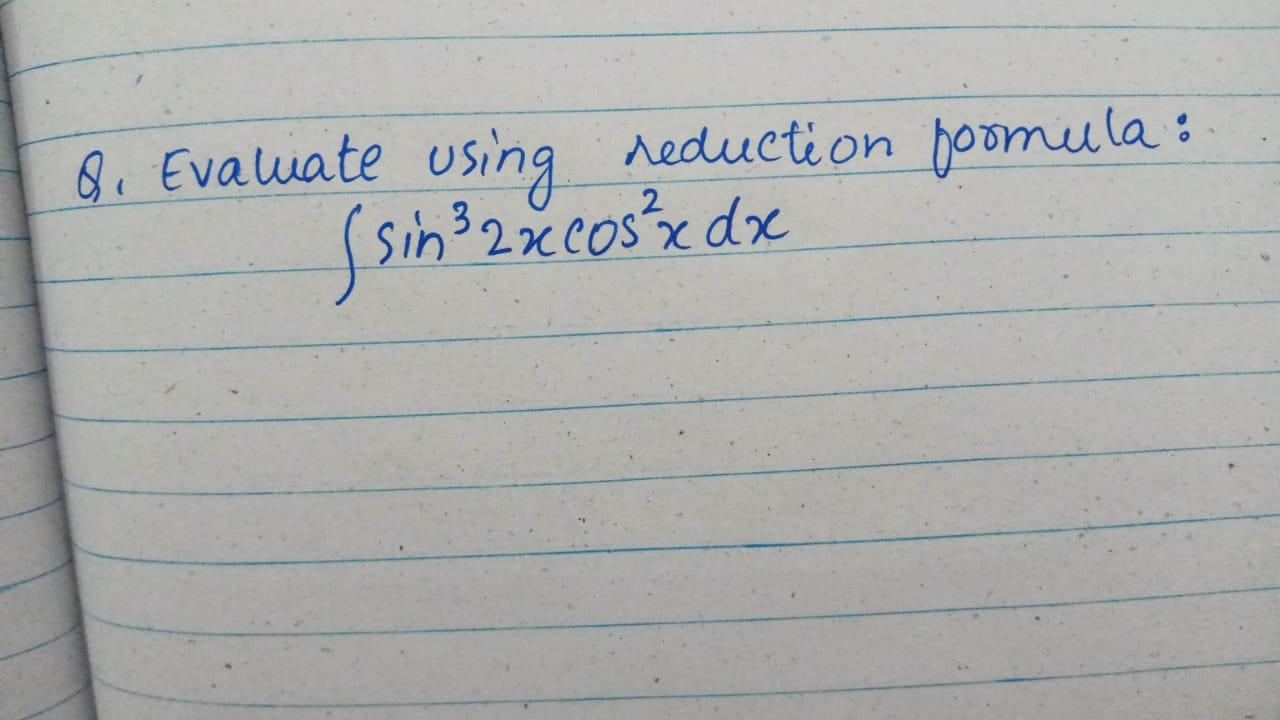 Q. Evaluate using reduction formula:
∫ sin³2x cos²x dx